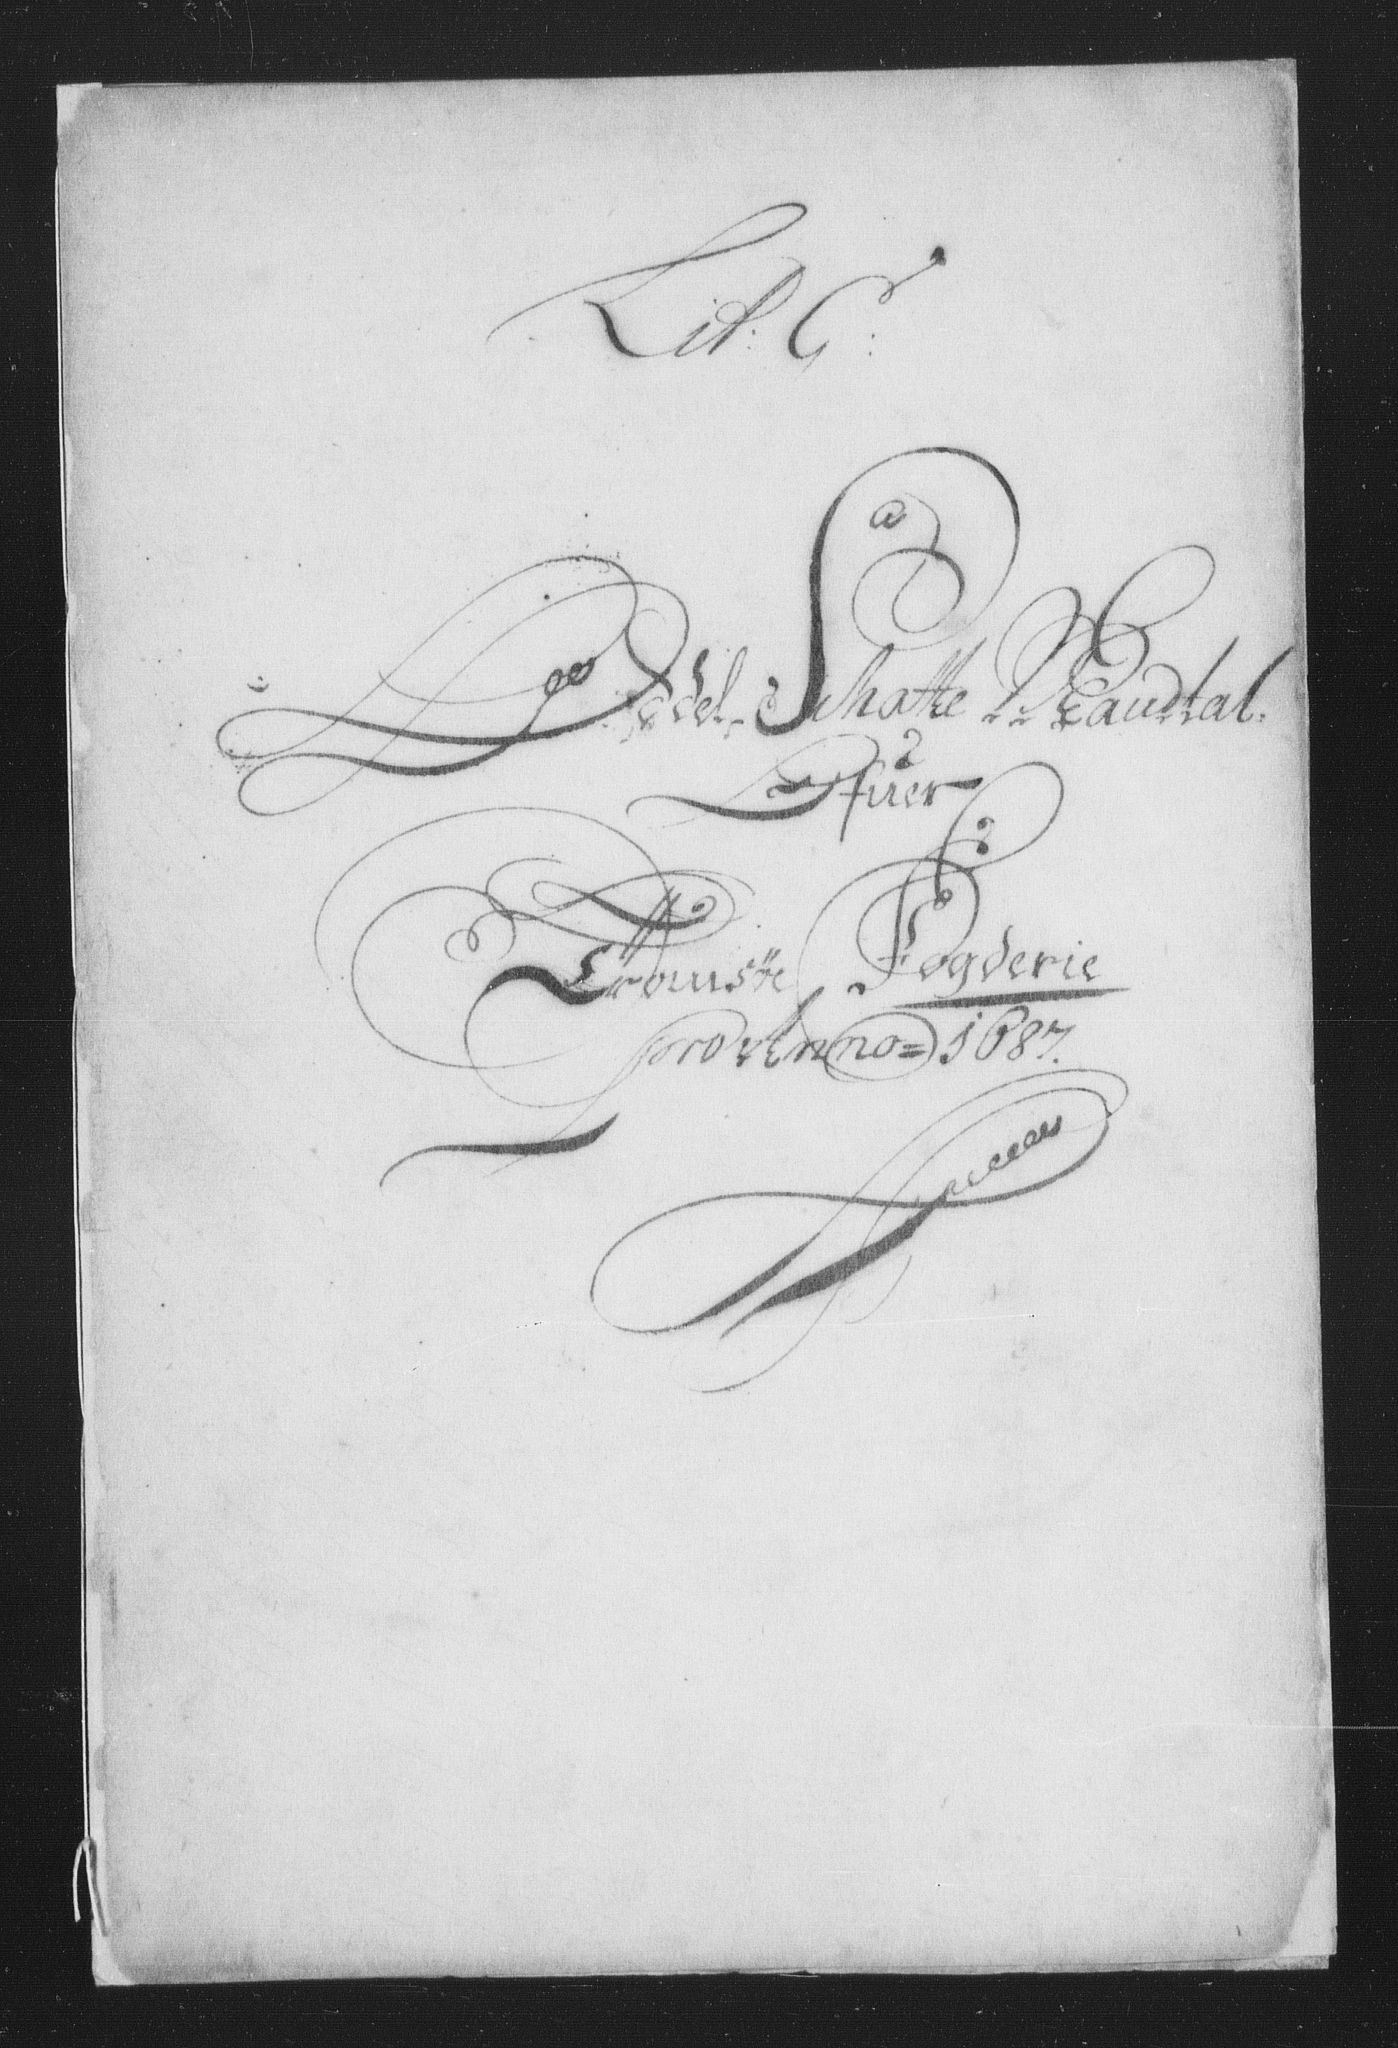 Lit: G:
Ledel Schatte Mandtal.
Ofuer
Tromsøe Fogderie
pro Anno = 1687.